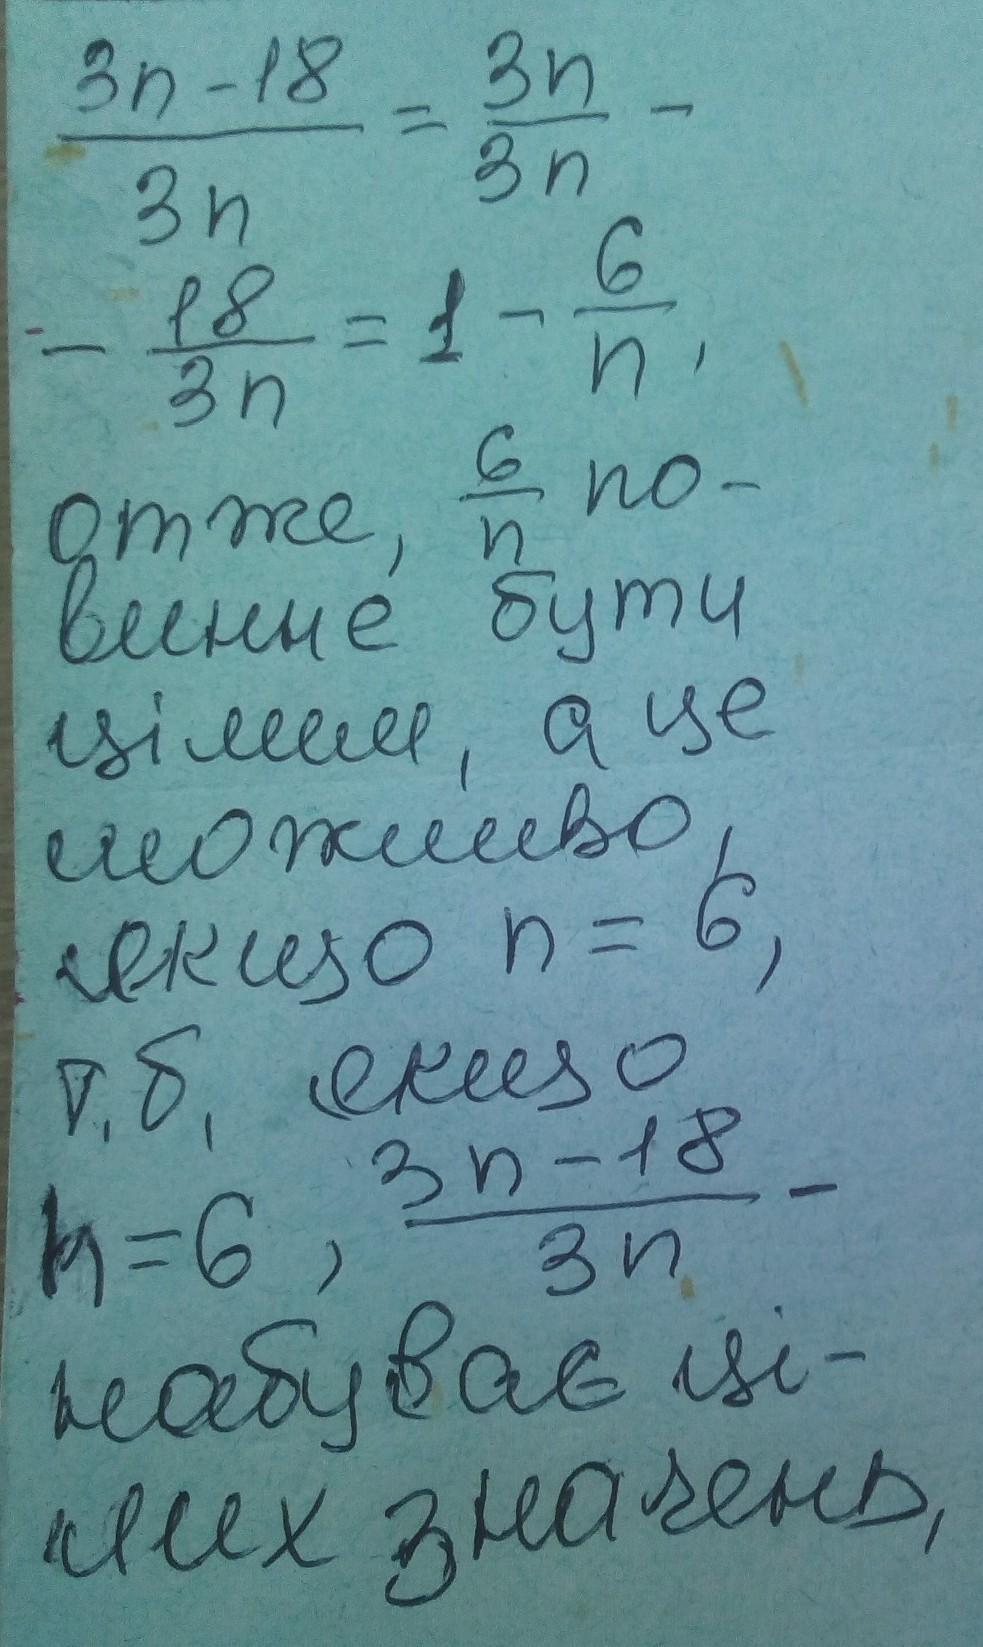 3n-18/3n = 3n/3n -
- 18/3n = 1 - 6/n,
отже, 6/n по-
винне бути
цілим, а це
можливо,
якщо n = 6,
т.б. якщо
n=6, 3n-18/3n -
набуває ці-
лих значень,